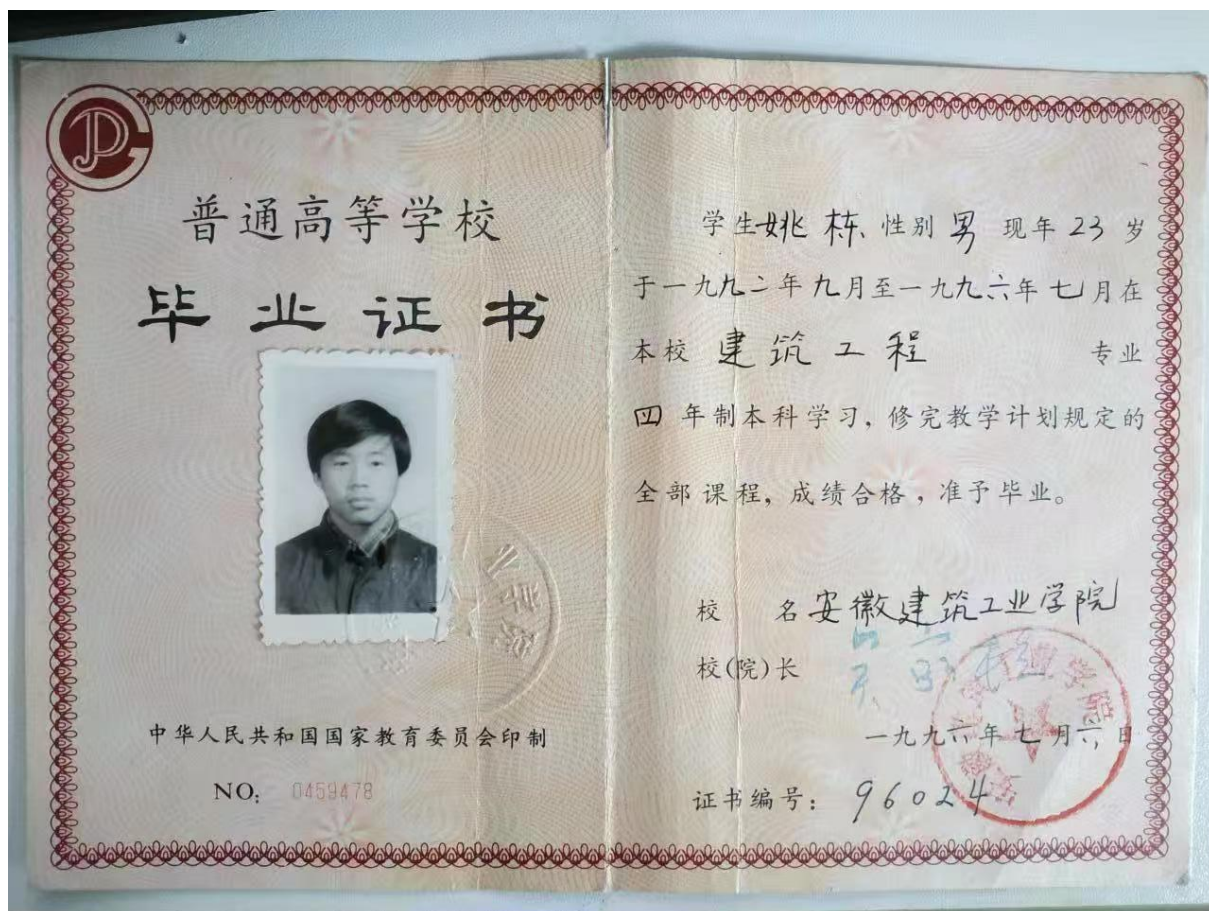 普通高等学校
毕业证书
中华人民共和国国家教育委员会印制
NO: 0459478
学生姚栋、性别男 现年23岁
于一九九二年九月至一九九六年七月在
本校 建筑工程 专业
四年制本科学习，修完教学计划规定的
全部课程，成绩合格，准予毕业。
校 名 安徽建筑工业学院
校(院)长
一九九六年七月六日
证书编号： 96024